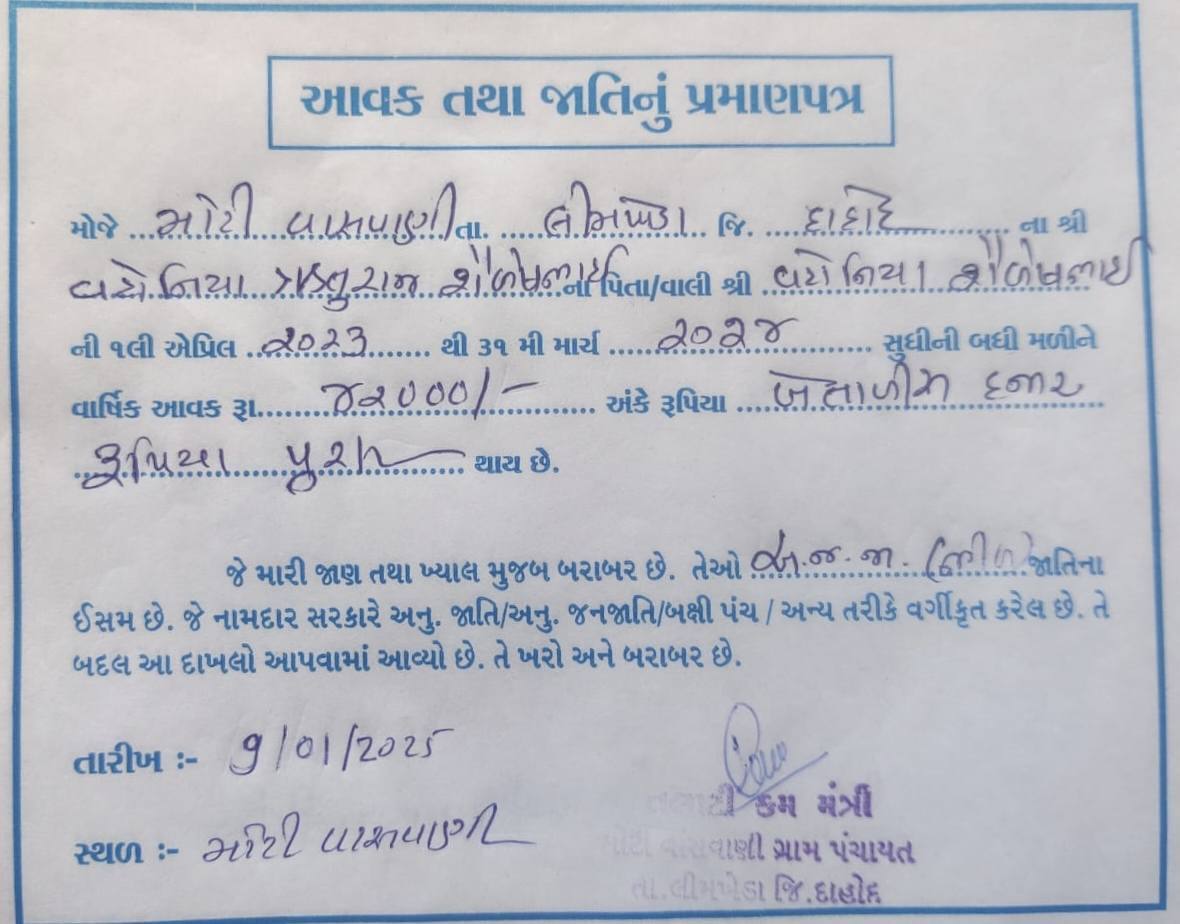 આવક તથા જાતિનું પ્રમાણપત્ર
મોજે મોટી વાસવાણી તા. લીમખેડા જિ. દાહોદ ના શ્રી
શૈલેષભાઈ ના પિતા/વાલી શ્રી શૈલેષભાઈ
ની ૧લી એપ્રિલ ૨૦૨૩ થી ૩૧ મી માર્ચ ૨૦૨૪ સુધીની બધી મળીને
વાર્ષિક આવક રૂા. ૪૨૦૦૦/- અંકે રૂપિયા બેતાળીસ હજાર
રૂપિયા પુરા થાય છે.
જે મારી જાણ તથા ખ્યાલ મુજબ બરાબર છે. તેઓ અ.જ.જા. (ભીલ) જાતિના
ઈસમ છે. જે નામદાર સરકારે અનુ. જાતિ/અનુ. જનજાતિ/બક્ષી પંચ / અન્ય તરીકે વર્ગીકૃત કરેલ છે. તે
બદલ આ દાખલો આપવામાં આવ્યો છે. તે ખરો અને બરાબર છે.
તારીખ :- 9/01/2025
સ્થળ :- મોટી વાસવાણી
તલાટી કમ મંત્રી
મોટી વાંસવાણી ગ્રામ પંચાયત
તા.લીમખેડા જિ.દાહોદ